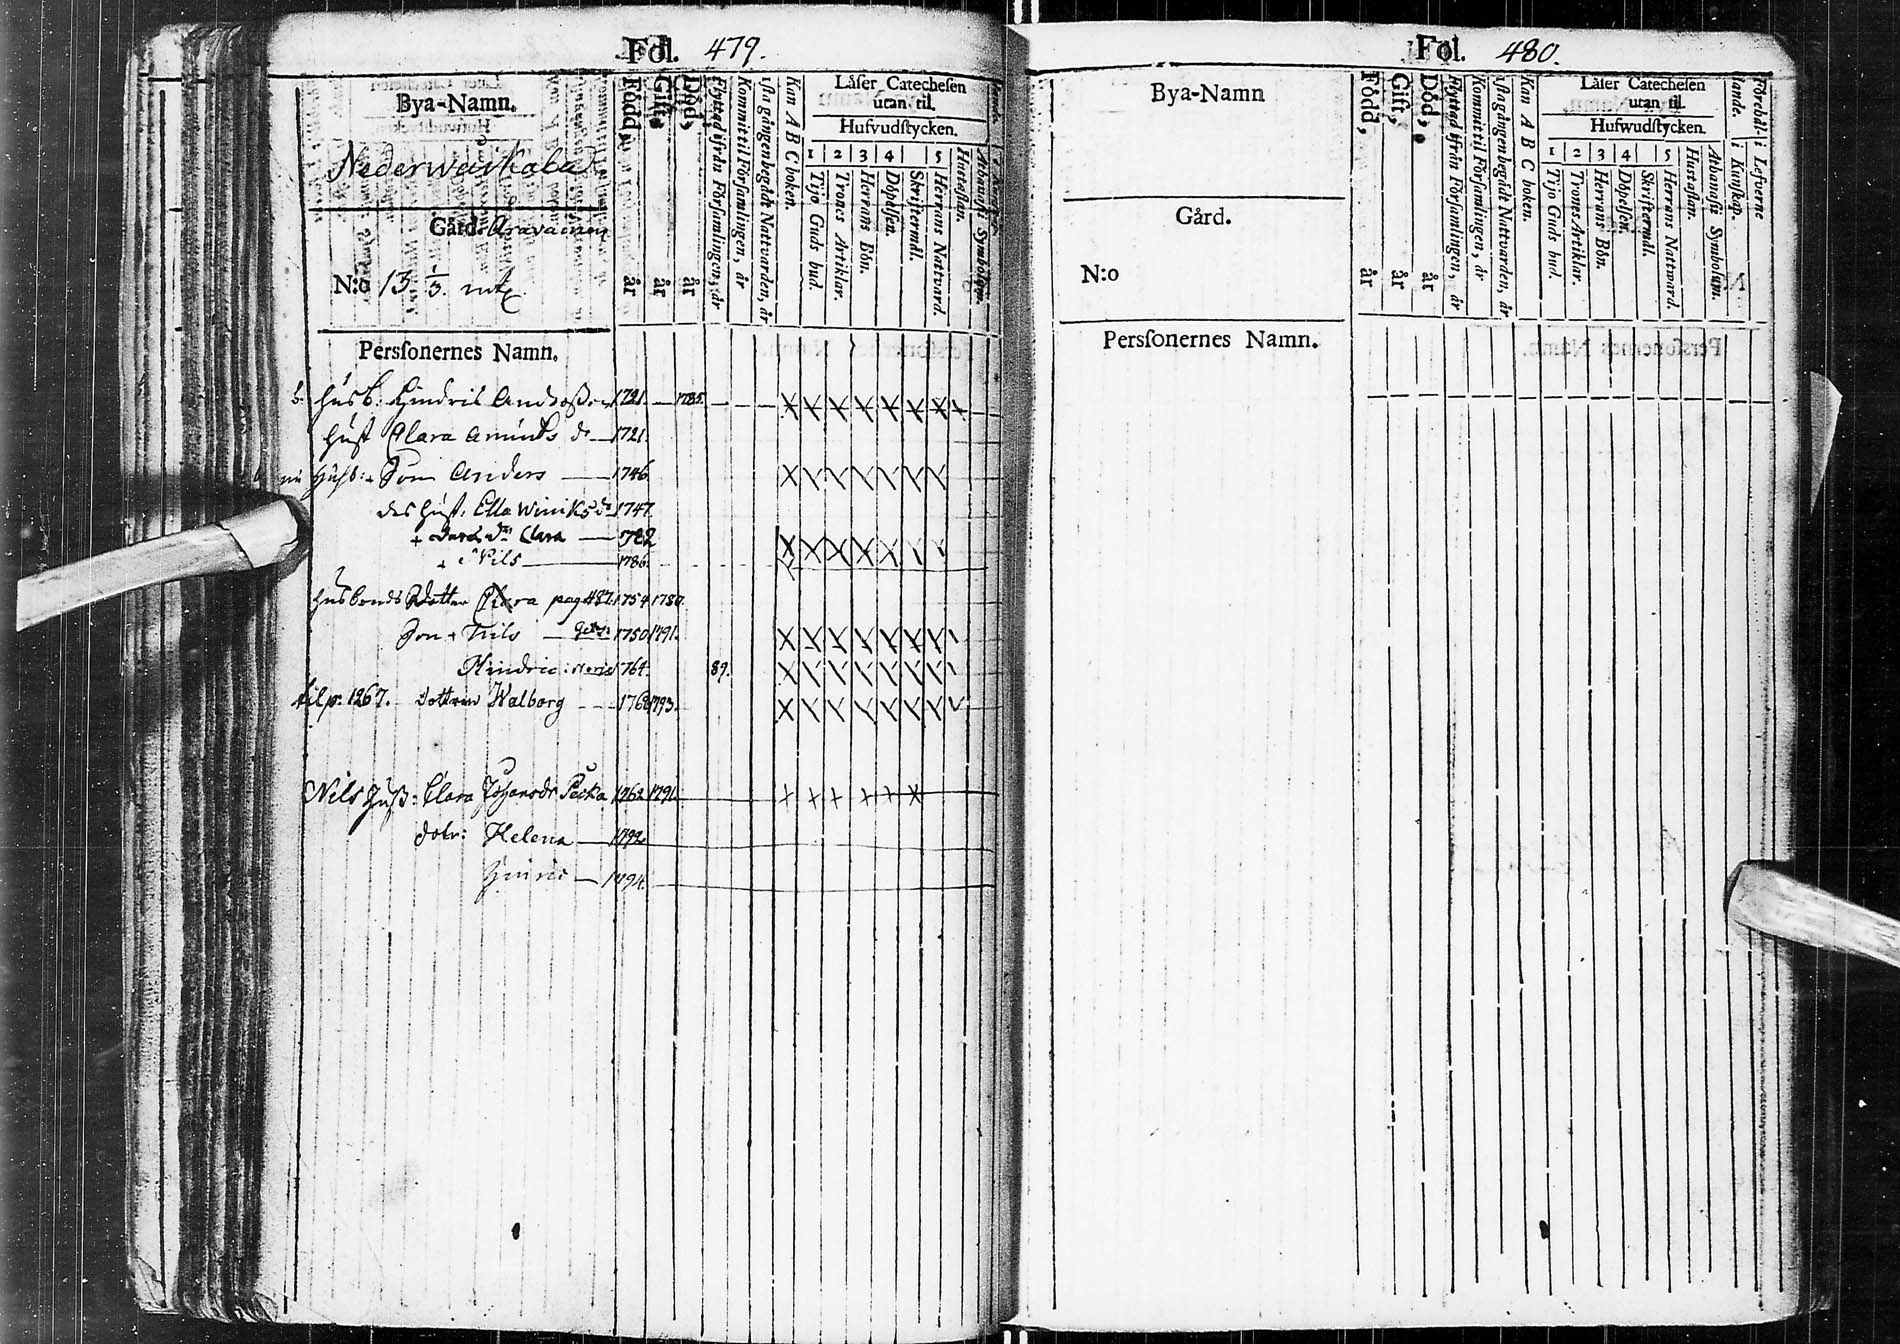 Fol. 479.
Bya-Namn.
Nederweikala
Gård. Aravainen
N:o 13 1/3. mtl
Född, år
Gift, år
Död, år
Flyttad ifrån Församlingen, år
Kommit til Församlingen, år
1sta gången begådt Nattvarden, år
Kan A B C boken.
Läser Catechesen
utan til.
Hufvudstycken.
1 2 3 4 5
Tijo Guds bud.
Trones Artiklar.
Herrans Bön.
Döpelsen.
Skriftermål.
Herrans Nattvard.
Hustaflan.
Athanasii Symbolum.
Personernes Namn.
b. husb: Hindric Andersson 1721. — 1785.
hust Clara Amunds dr 1721.
nu husb: + Son Anders 1746
des hust. Ella Winiks dr 1747
+ dr Clara 1782
+ Nils 1786.
husbonds Dotter Clara pag 487. 1754 1780.
Son + Nils 1750 1791.
Hindric 1764. 89.
til p: 1267. dottren Walborg 1768 1793.
Nils hust: Clara Johansdr Pecka 1762 1791.
dotr: Helena 1792
Hinric 1794.
Fol. 480.
Bya-Namn
Gård.
N:o
Född, år
Gift, år
Död, år
Flyttad ifrån Församlingen, år
Kommit til Församlingen, år
1sta gången begådt Nattvarden, år
Kan A B C boken.
Läser Catechesen
utan til.
Hufwudstycken.
1 2 3 4 5
Tijo Guds bud.
Trones Artiklar.
Herrans Bön.
Döpelsen.
Skriftermål.
Herrans Natward.
Hustaflan.
Athanasii Symbolum.
Förehållande.
i Kunskap.
i Lefverne
Personernes Namn.